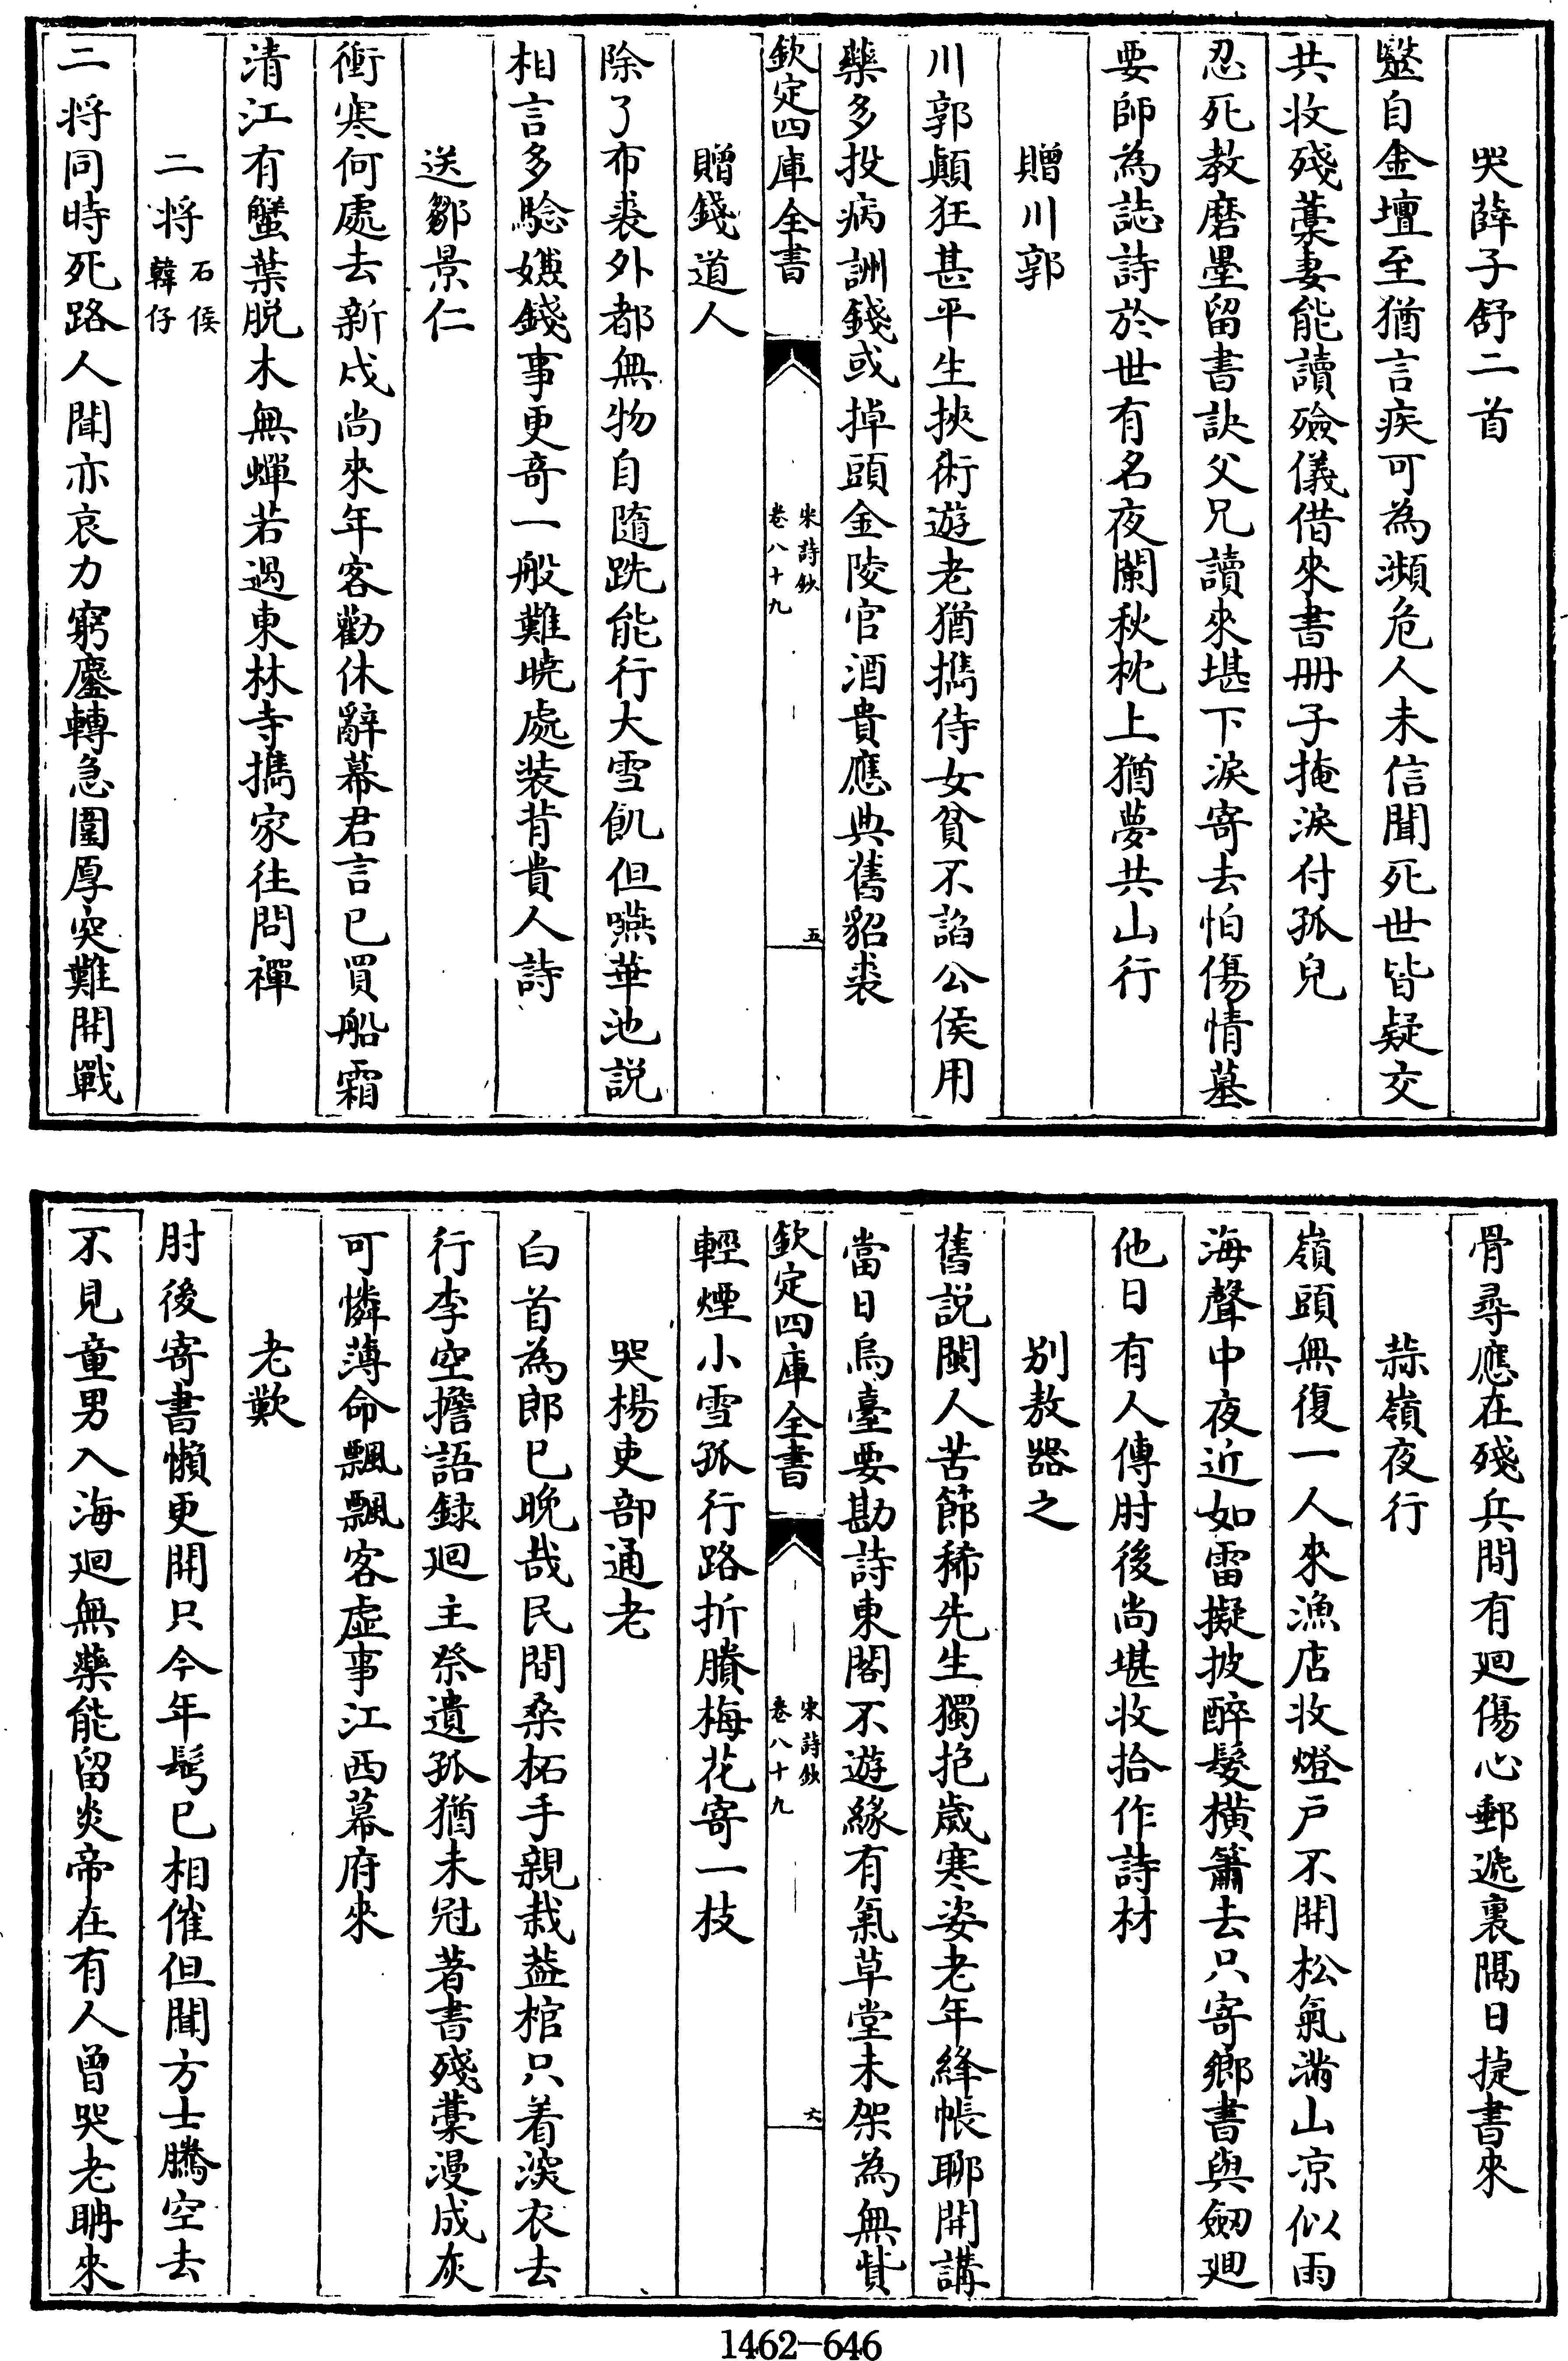 哭薛子舒二首
毉自金壇至猶言疾可為瀕危人未信聞死世皆疑交
共收殘藁妻能讀殮儀借來書册子掩淚付孤兒
忍死教磨墨留書訣父兄讀來堪下淚寄去怕傷情墓
要師為誌詩於世有名夜闌秋枕上猶夢共山行
贈川郭
川郭顛狂甚平生挾術遊老猶攜侍女貧不諂公侯用
藥多投病詶錢或掉頭金陵官酒貴應典舊貂裘
欽定四庫全書
宋詩鈔
卷八十九
五
贈錢道人
除了布裘外都無物自隨跣能行大雪飢但嚥華池説
相言多驗嫌錢事更竒一般難曉處装背貴人詩
送鄒景仁
衝寒何處去新戍尚來年客勸休辭幕君言已買船霜
清江有蟹葉脱木無蟬若過東林寺攜家往問禪
二将石侯韓仔
二将同時死路人聞亦哀力窮鏖轉急圍厚突難開戰
骨尋應在殘兵間有廻傷心郵遞裏隔日捷書來
蒜嶺夜行
嶺頭無復一人來漁店收燈戸不開松氣滿山凉似雨
海聲中夜近如雷擬披醉髮横簫去只寄鄉書與劒廻
他日有人傳肘後尚堪收拾作詩材
别敖器之
舊説閩人苦節稀先生獨抱歲寒姿老年絳帳聊開講
當日烏臺要勘詩東閣不遊緣有氣草堂未架為無貲
欽定四庫全書
宋詩鈔
卷八十九
六
輕煙小雪孤行路折賸梅花寄一枝
哭楊吏部通老
白首為郎已晩哉民間桑柘手親栽葢棺只着深衣去
行李空擔語録廻主祭遺孤猶未冠著書殘藁漫成灰
可憐薄命飄飄客虛事江西幕府來
老歎
肘後寄書懶更開只今年髩已相催但聞方士騰空去
不見童男入海廻無藥能留炎帝在有人曾哭老聃來
1462-646